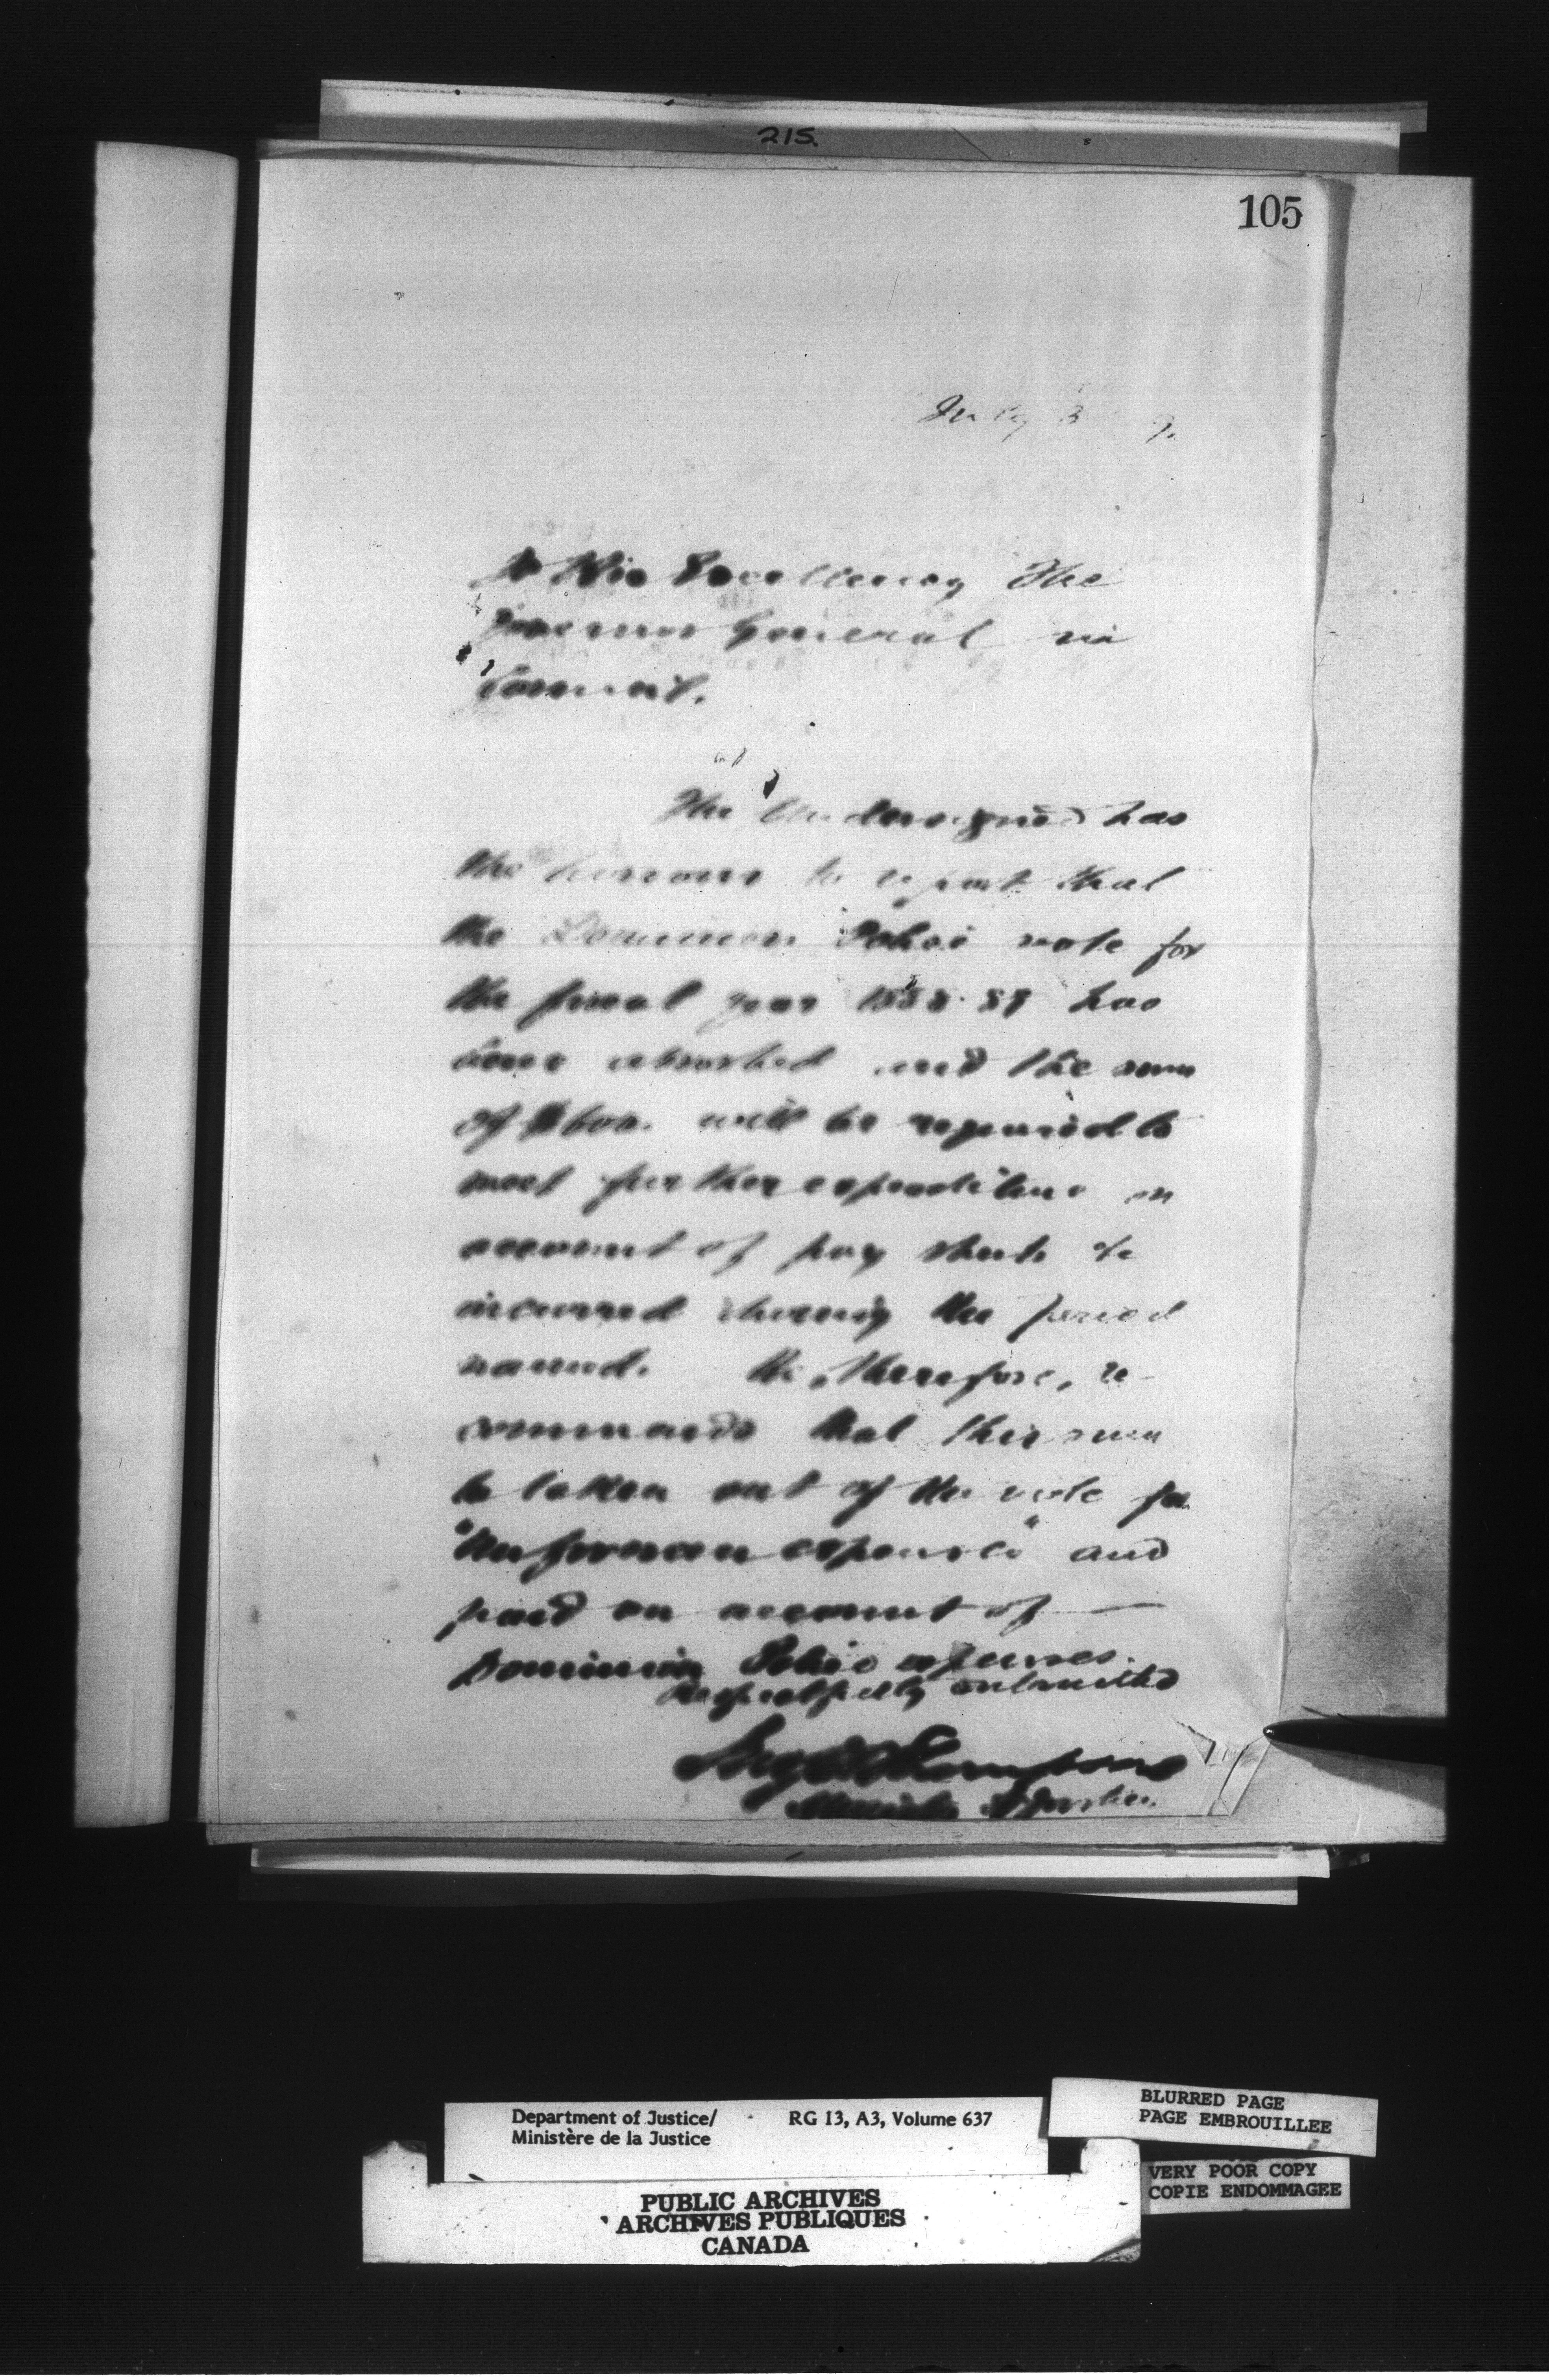 215.
105
July 3 9.
To His Excellency The
Governor General in
Council.
The Undersigned has
the honour to report that
the Dominion Police vote for
the fiscal year 1888-89 has
been exhausted and the sum
of $600. will be required to
meet further expenditure on
account of pay sheets &c
incurred during the period
named. He, therefore, re-
commends that this sum
be taken out of the vote for
"Unforeseen expenses" and
paid on account of —
Dominion Police expenses.
Respectfully submitted
Jno S D Thompson
Minister of Justice.
Department of Justice/ RG 13, A3, Volume 637
Ministère de la Justice
BLURRED PAGE
PAGE EMBROUILLEE
VERY POOR COPY
COPIE ENDOMMAGEE
PUBLIC ARCHIVES
ARCHIVES PUBLIQUES
CANADA